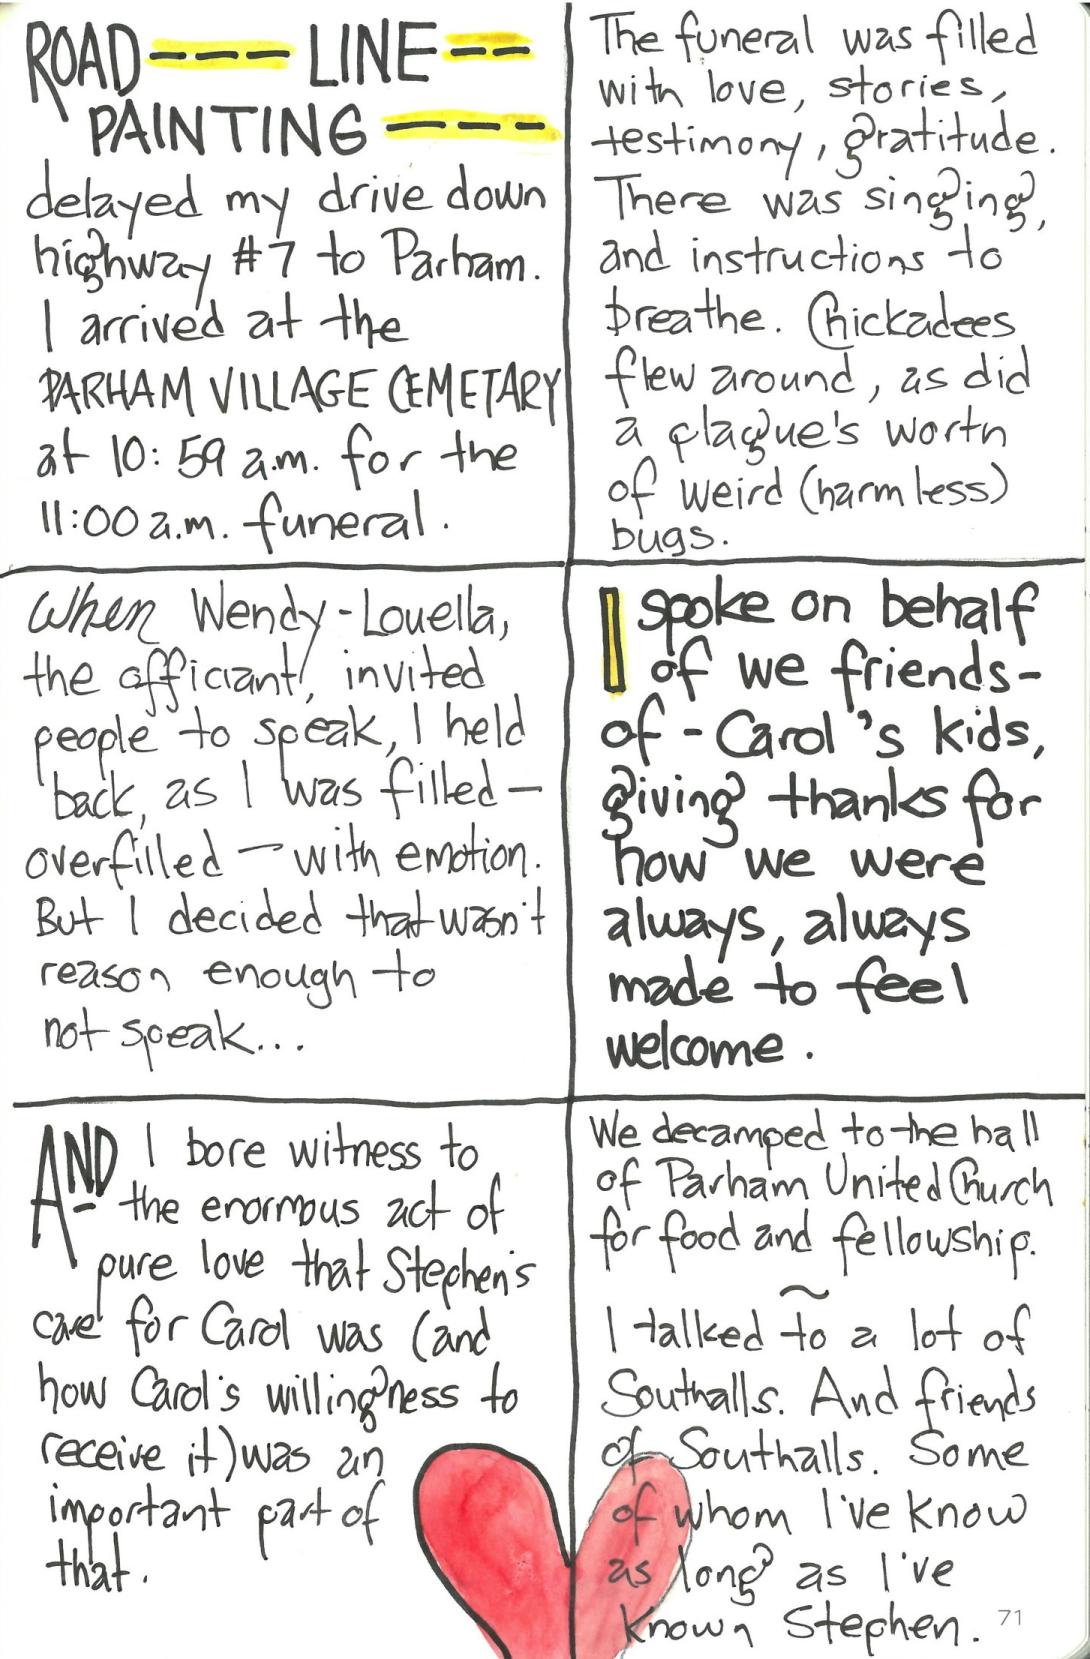 ROAD LINE
PAINTING
delayed my drive down
highway #7 to Parham.
I arrived at the
PARHAM VILLAGE CEMETARY
at 10:59 a.m. for the
11:00 a.m. funeral.
The funeral was filled
with love, stories,
testimony, gratitude.
There was singing,
and instructions to
breathe. Chickadees
flew around, as did
a plague's worth
of weird (harmless)
bugs.
When Wendy-Louella,
the officiant, invited
people to speak, I held
back, as I was filled —
overfilled — with emotion.
But I decided that wasn't
reason enough to
not speak...
I spoke on behalf
of we friends-
of-Carol's kids,
giving thanks for
how we were
always, always
made to feel
welcome.
AND I bore witness to
the enormous act of
pure love that Stephen's
care for Carol was (and
how Carol's willingness to
receive it) was an
important part of
that.
We decamped to the hall
of Parham United Church
for food and fellowship.
~
I talked to a lot of
Southalls. And friends
of Southalls. Some
of whom I've know
as long as I've
known Stephen.
71